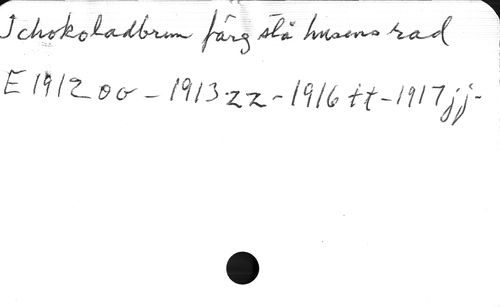 I chokoladbrun färg stå husens rad
E 1912 oo - 1913 zz - 1916 tt - 1917 jj -